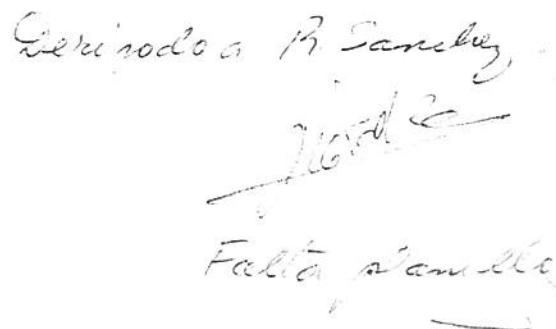 Derivado a R. Sanchez
Falta planilla